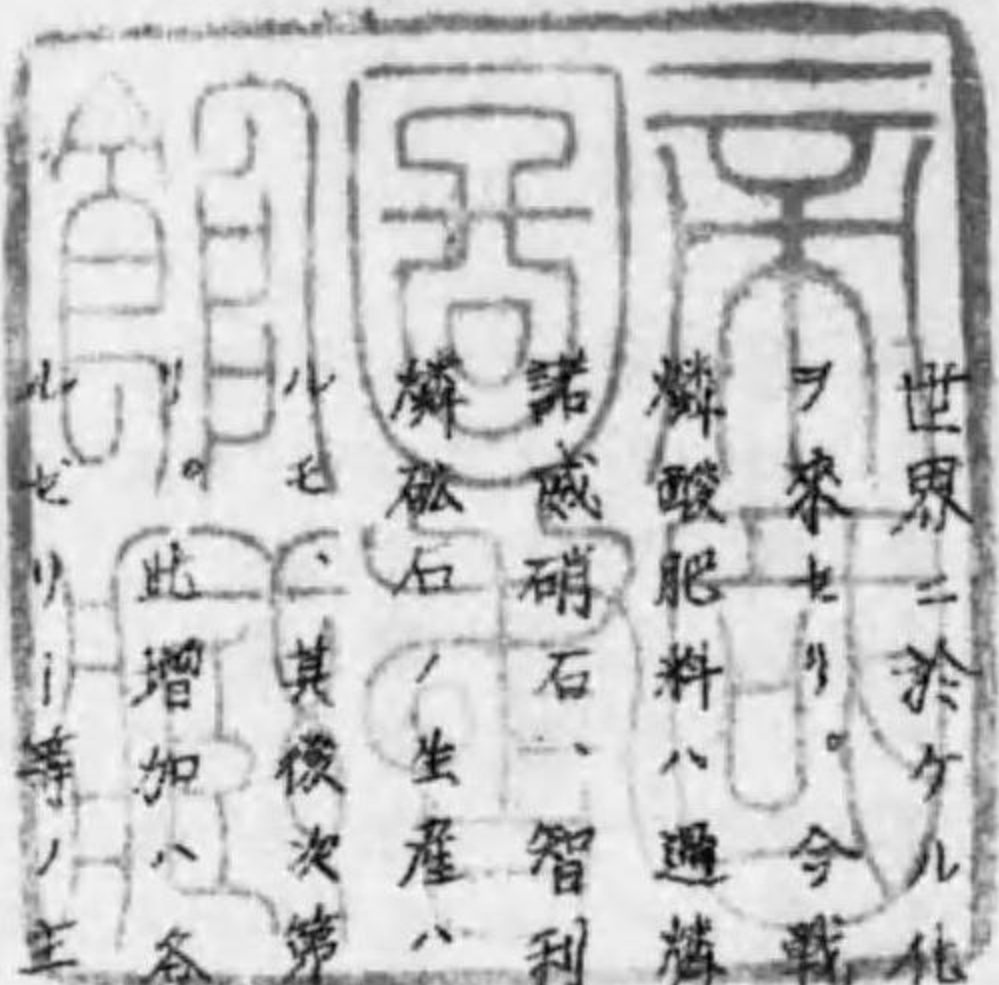 世界ニ於ケル化
ヲ來セリ。今戰
燐酸肥料ハ過燐
諾威硝石、智利
燐砿石ノ生産ハ
ルモ、其後次第
リ。此増加ハ各
ルゼリー等ノ主
帝國
圖書